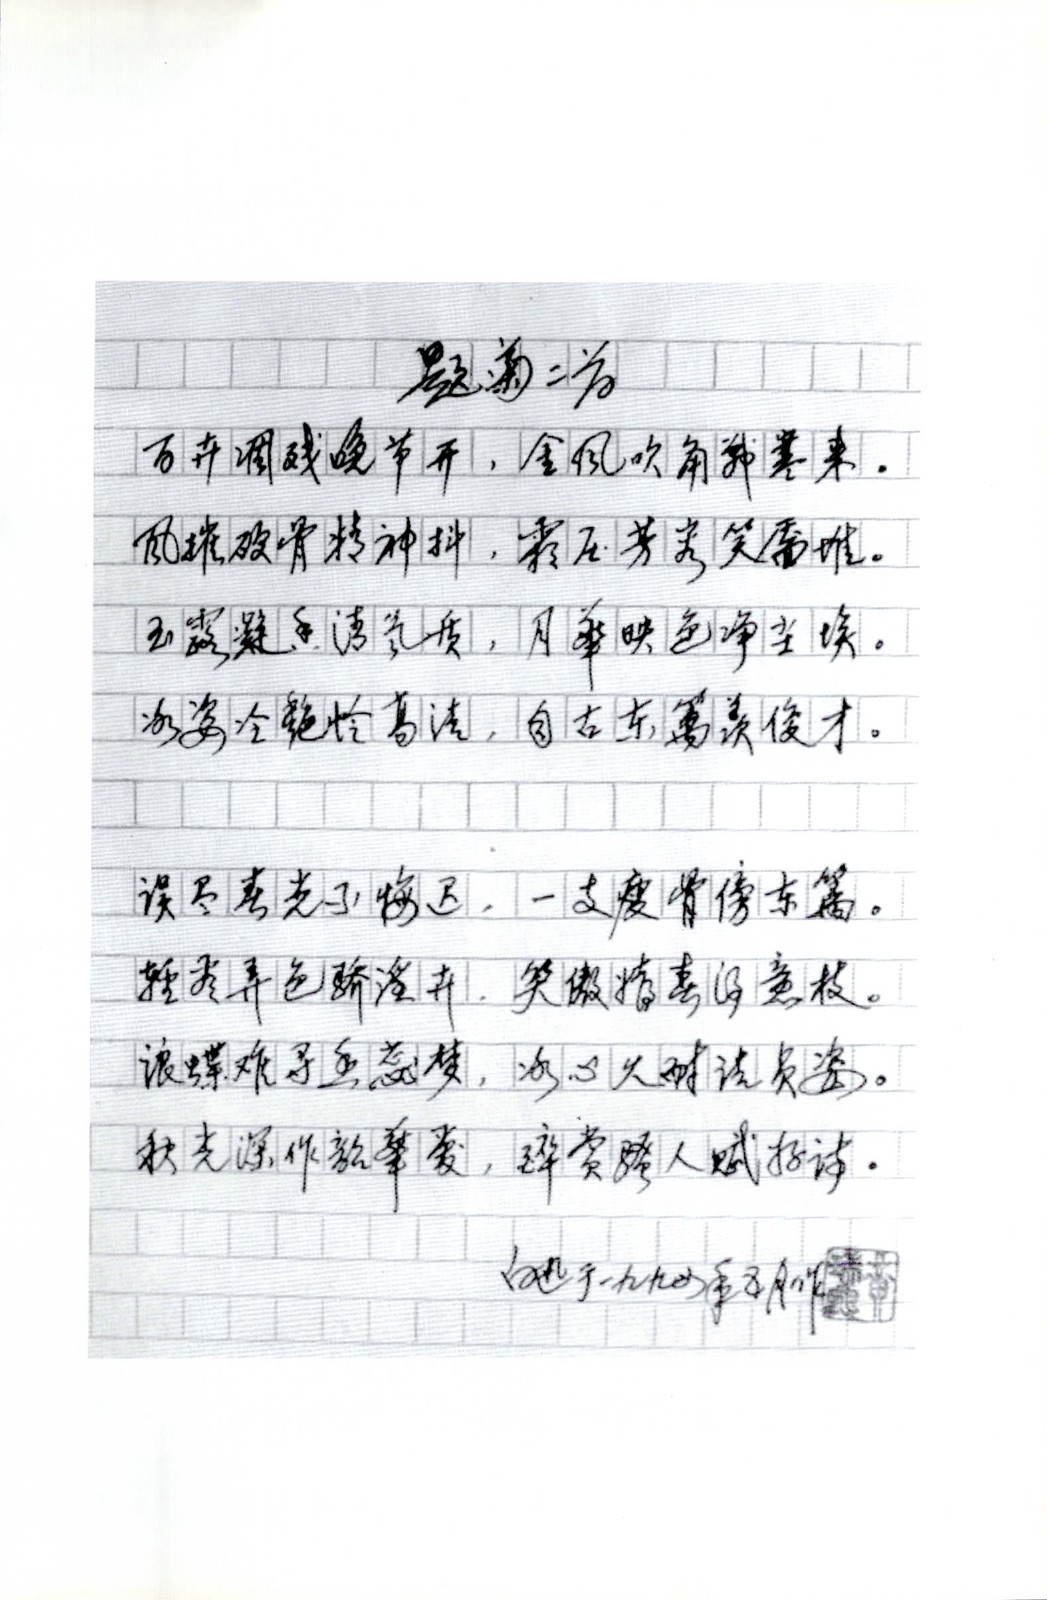 题菊二首
百卉凋残晚节开，金风吹角战寒来。
风摧破骨精神抖，霜压芳容笑雪堆。
玉露凝香清气质，月华映色净尘埃。
冰姿冷艳怜高洁，自古东篱羡俊才。
误尽春光不悔迟，一支瘦骨傍东篱。
轻容弄色骄濫卉，笑傲惜春得意枝。
浪蝶难寻香蕊梦，冰心久耐洁贞姿。
秋光深作韶华爱，醉赏骚人赋好诗。
于一九九四年五月作